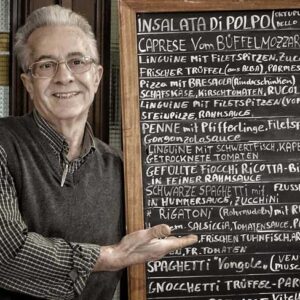 INSALATA Di POLPO
CAPRESE Vom BÜFFELMOZZAR
LINGUINE MIT FILETSPITZEN, ZUC
FRISCHER TRÜFFEL (aus ALBA) PARME
Pizza MIT BRESAOLA (Rinderschinken)
SCHAFSKÄSE, KIRSCHTOMATEN, RUCOL
LINGUINE MIT FILETSPITZEN (VO
STEINPILZE, RAHMSAUCE
PENNE MIT Pfifferlinge, Filetsp
Gorgonzolasauce
LINGUINE MIT SCHWERTFISCH, KAP
GETROCKNETE TOMATEN
GEFÜLLTE FIOCCHI RICOTTA-Bi
IN FEINER RAHMSAUCE
SCHWARZE SPAGHETTI MIT FLUSS
IN HUMMERSAUCE, ZUCCHINI
* RIGATONI (Rohrnudeln) MIT RU
SALSICCIA, TOMATENSAUCE, P
FRISCHEN TUHNFISCH, AR
FR. TOMATEN
SPAGHETTI "Vongole" (VEN
MUSC
GNOCCHETTI TRÜFFEL-PAR